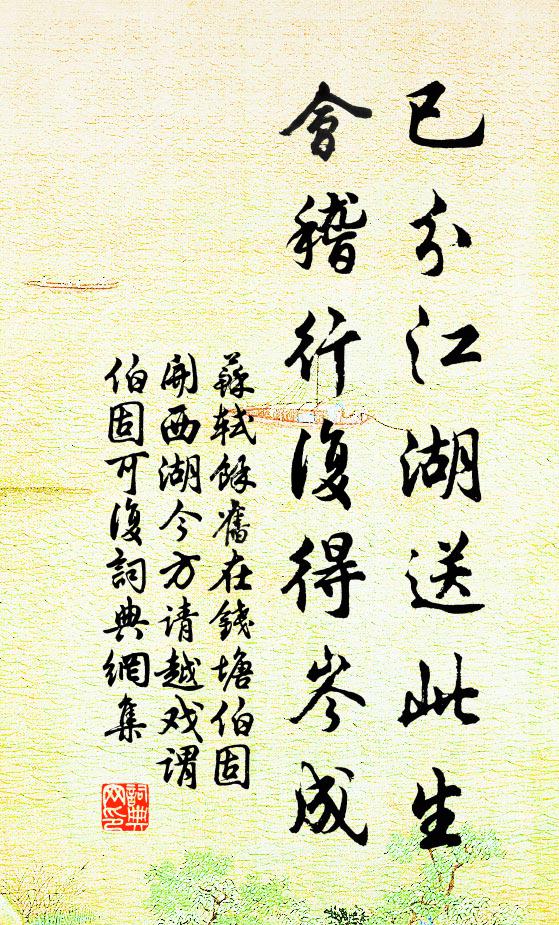 已分江湖送此生
會稽行復得岑成
蘇軾餘舊在錢塘伯固
開西湖今方请越戏谓
伯固可復詞典網集
詞典网印